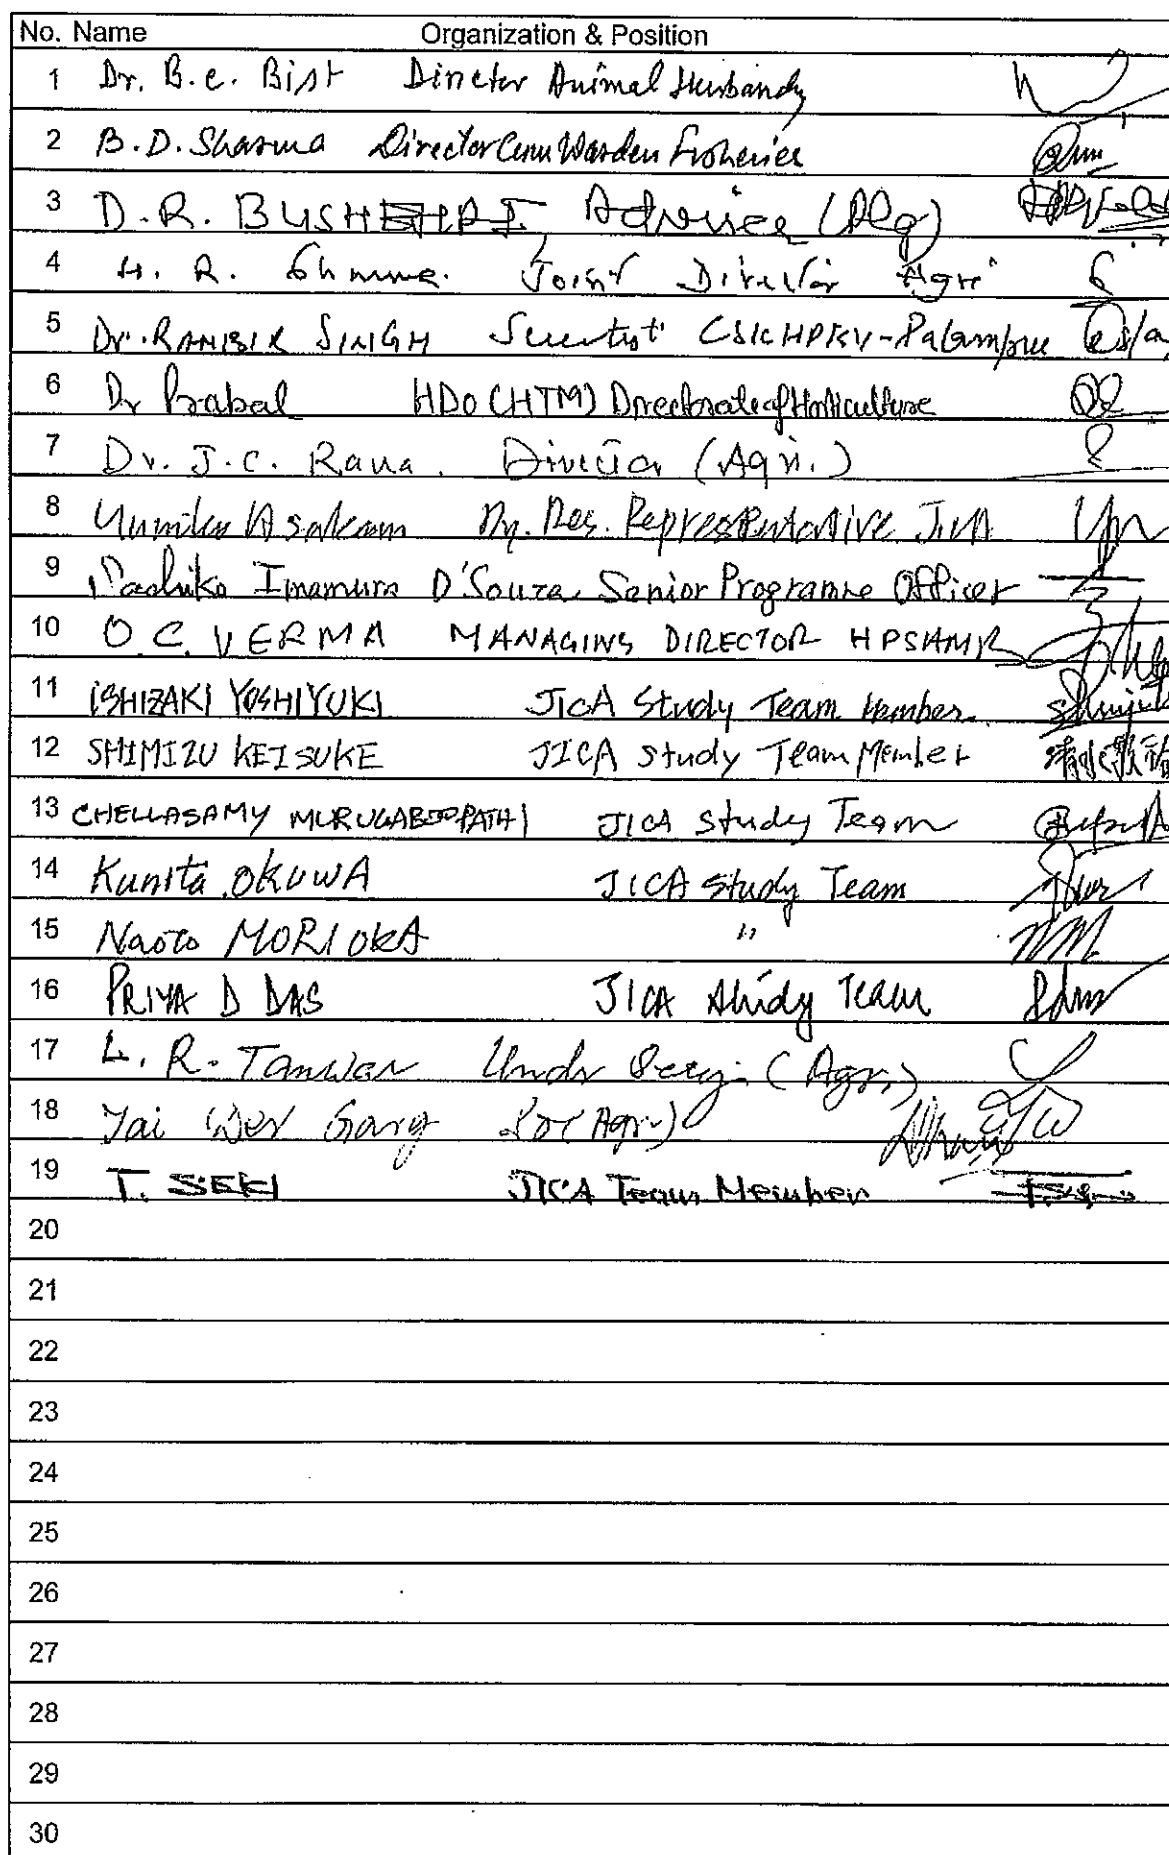 No. Name Organization & Position
1 Dr. B.C. Bist Director Animal Husbandry
2 B.D. Sharma Director Cum Warden Fisheries
3 D.R. BUSHEHRI, Advisor (Ag)
4 H. R. Sharma. Joint Director Agri
5 Dr. RANBIR SINGH Scientist CSKHPKV-Palampur
6 Dr Prabal HDO (HTM) Directorate of Horticulture
7 Dr. J.C. Rana. Director (Agri.)
8 Asakawa Representative JICA
9 Imamura D'Souza Senior Programme Officer
10 O.C. VERMA MANAGING DIRECTOR HPSAMB
11 ISHIZAKI YOSHIYUKI JICA Study Team Member.
12 SHIMIZU KEISUKE JICA Study Team Member 清水敬祐
13 CHELLASAMY MURUGABOOPATHI JICA Study Team
14 Kunita OKUWA JICA Study Team
15 Naoto MORIOKA "
16 PRIYA D DAS JICA Study Team
17 L. R. Tanwar Under Secy. (Agr.)
18 Jai Dev Garg (Agr.)
19 T. SEKI JICA Team Member
20
21
22
23
24
25
26
27
28
29
30